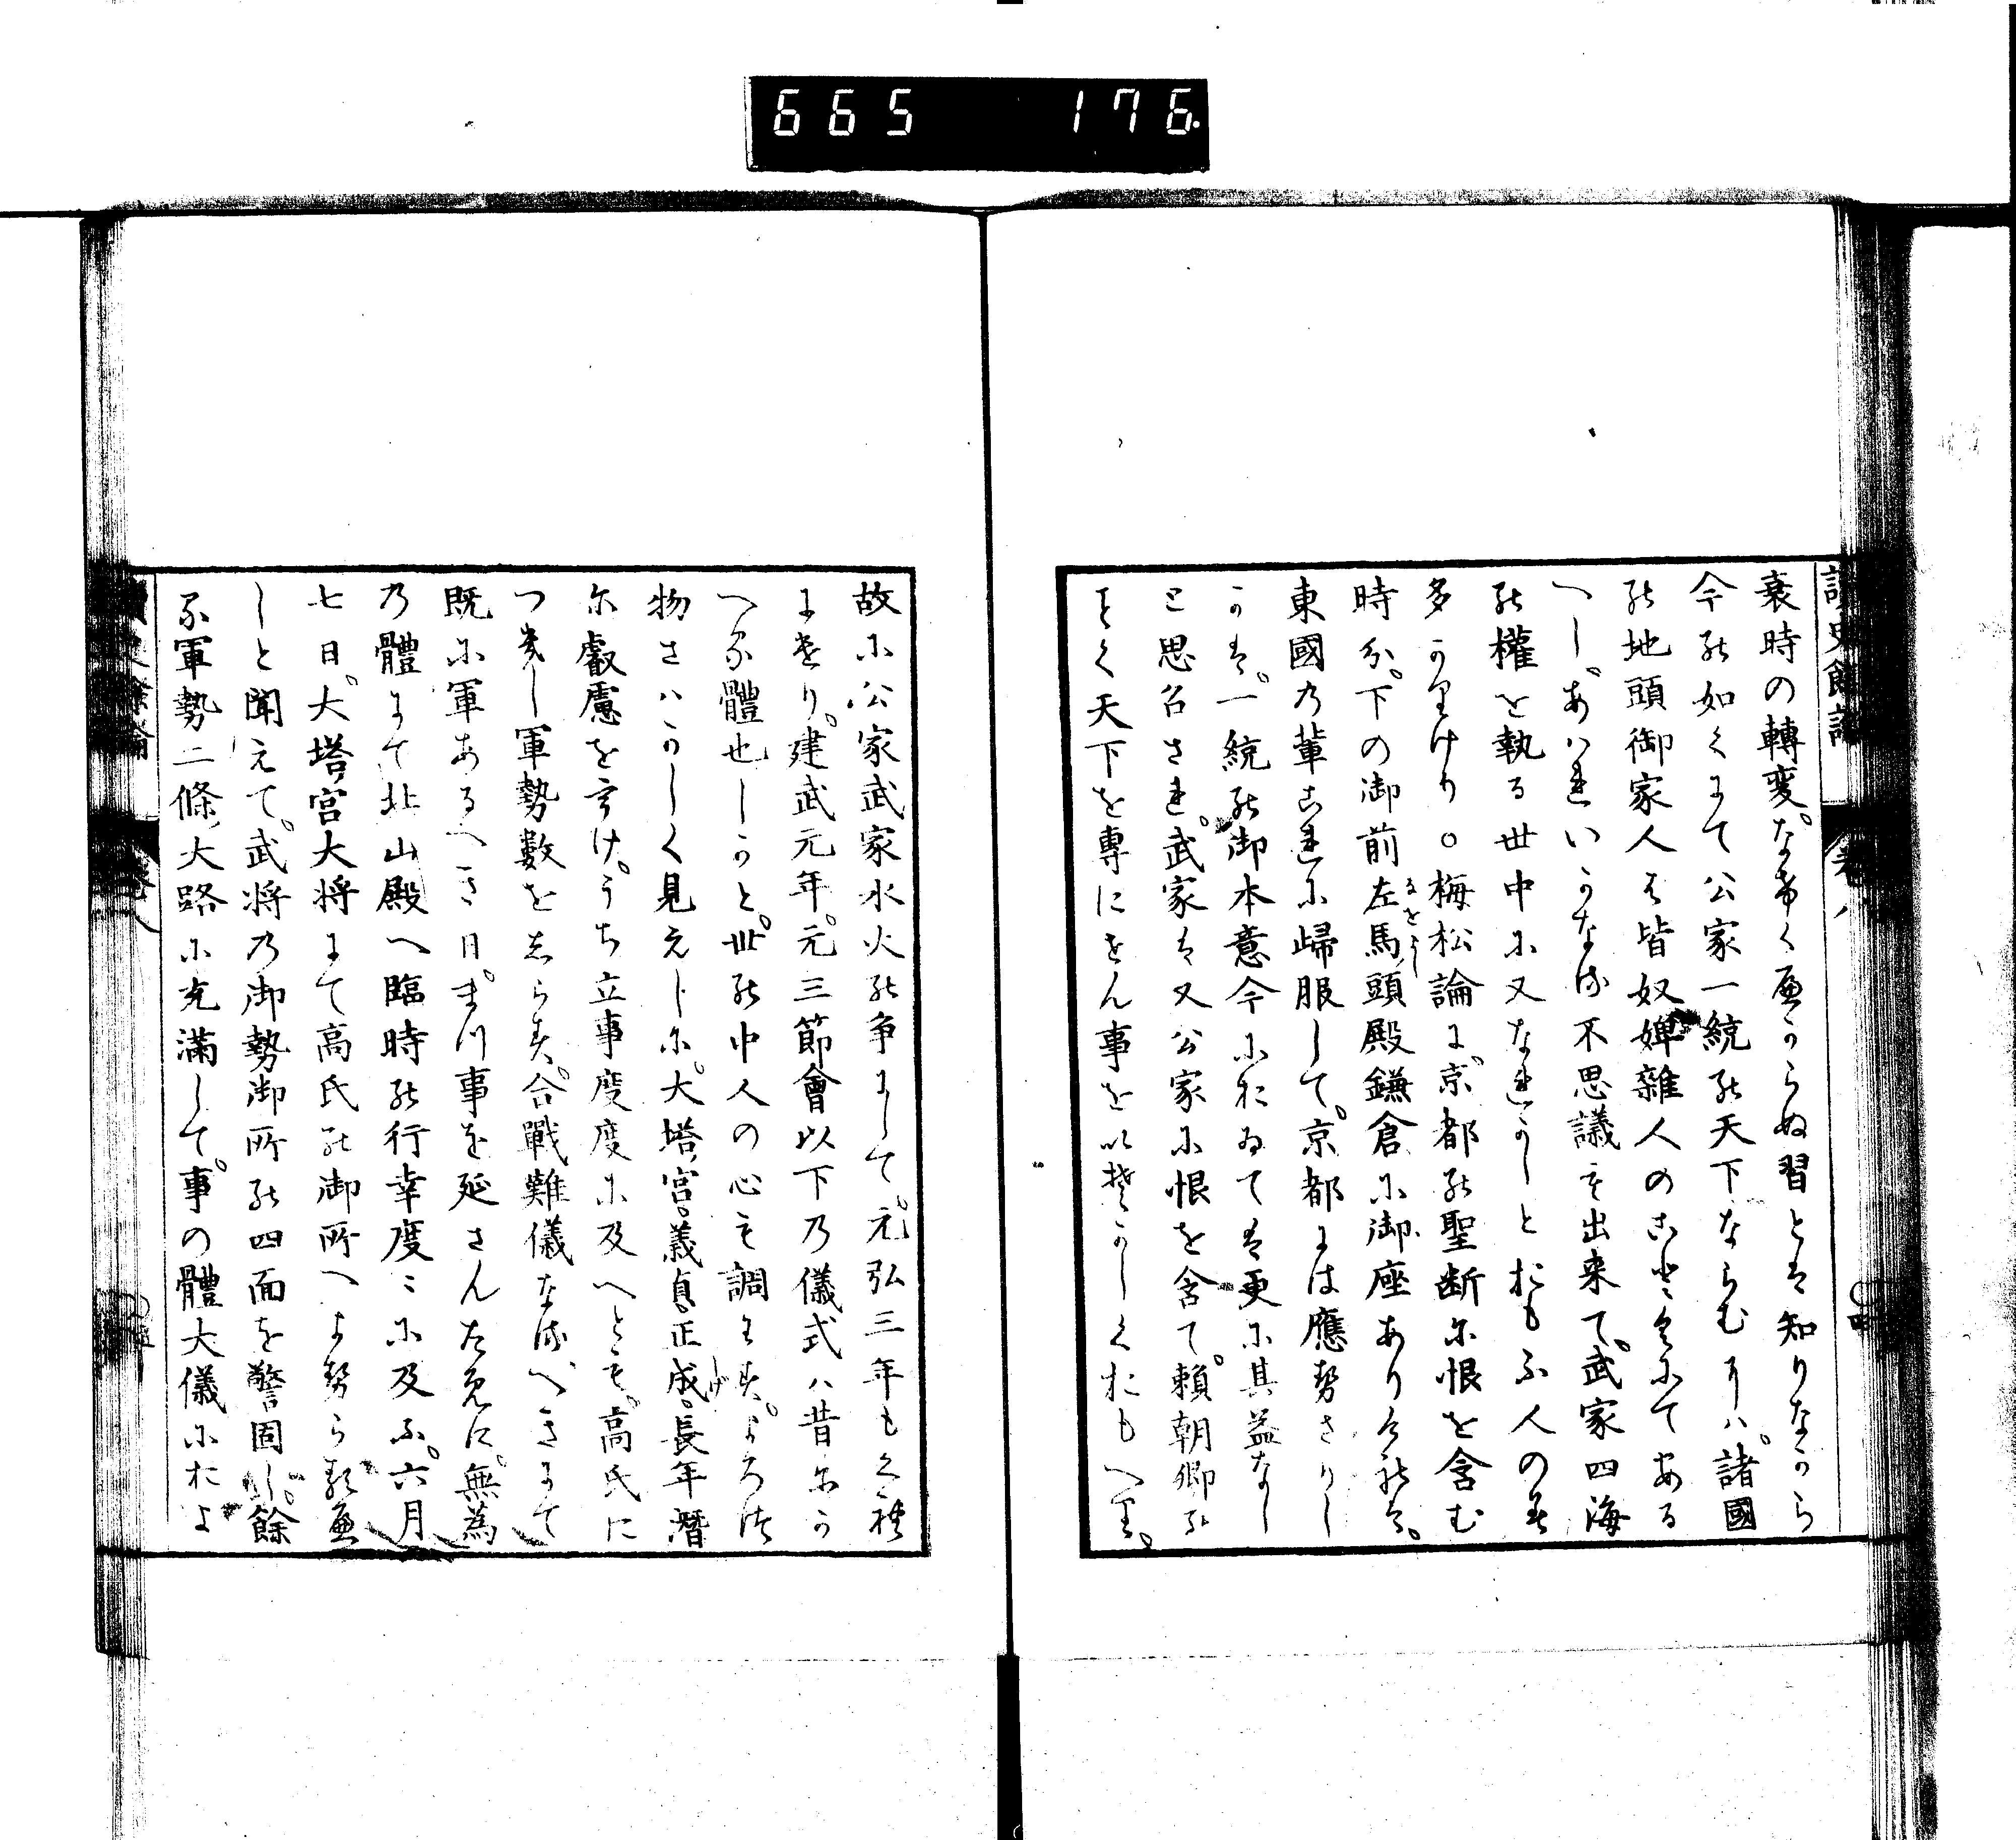 665 176.
讀史餘論 巻八
衰時の轉変。なけく扁からぬ習とは知りなから
今の如くにて公家一統の天下ならむには。諸國
の地頭御家人は皆奴婢雜人のことくにてある
へし。あはれいかなる不思議も出来て。武家四海
の權を執る世中に又なれかしとおもふ人のみ
多かりけり○梅松論に。京都の聖断に恨を含む
時分。下の御前左馬頭殿鎌倉に御座ありけれは。
東國の輩これに歸服して。京都には應せさりし
かは。一統の御本意今におゐては更に其益なし
と思召され。武家は又公家に恨を含て。頼朝卿の
ことく天下を專にせん事をいそかしくおもへり。
故に公家武家水火の争にして。元弘三年もくれ
にけり。建武元年。元三節會以下の儀式ハ昔にか
へる體也しかと。世の中人の心も調はす。よろつ
物さハかしく見えしに。大塔宮。義貞。正成。長年潜
に叡慮をうけ。うち立事度度に及へとも。高氏に
つきし軍勢数をしらす。合戰難儀なるへきにて
既に軍あるへき日。まつ事を延さんために。無為
の體にて北山殿へ臨時の行幸度々に及ふ。六月
七日。大塔宮大将にて高氏の御所へよせらる扁
しと聞えて。武将の御勢御所の四面を警固し。餘
る軍勢二條大路に充滿して。事の體大儀におよ
讀史餘論 巻八